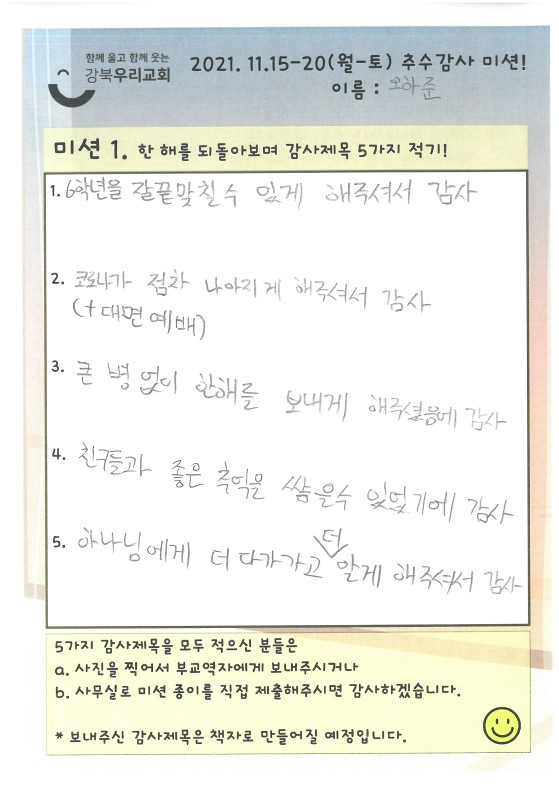 함께 울고 함께 웃는
강북우리교회
2021. 11.15-20(월-토) 추수감사 미션!
이름 : 오하준
미션 1. 한 해를 되돌아보며 감사제목 5가지 적기!
1. 6학년을 잘끝맞칠수 있게 해주셔서 감사
2. 코로나가 점차 나아지게 해주셔서 감사
(+대면예배)
3. 큰 병 없이 한해를 보내게 해주셨음에 감사
4. 친구들과 좋은 추억을 쌈을수 있었기에 감사
5. 하나님에게 더 다가가고 더 알게 해주셔서 감사
5가지 감사제목을 모두 적으신 분들은
a. 사진을 찍어서 부교역자에게 보내주시거나
b. 사무실로 미션 종이를 직접 제출해주시면 감사하겠습니다.
* 보내주신 감사제목은 책자로 만들어질 예정입니다.